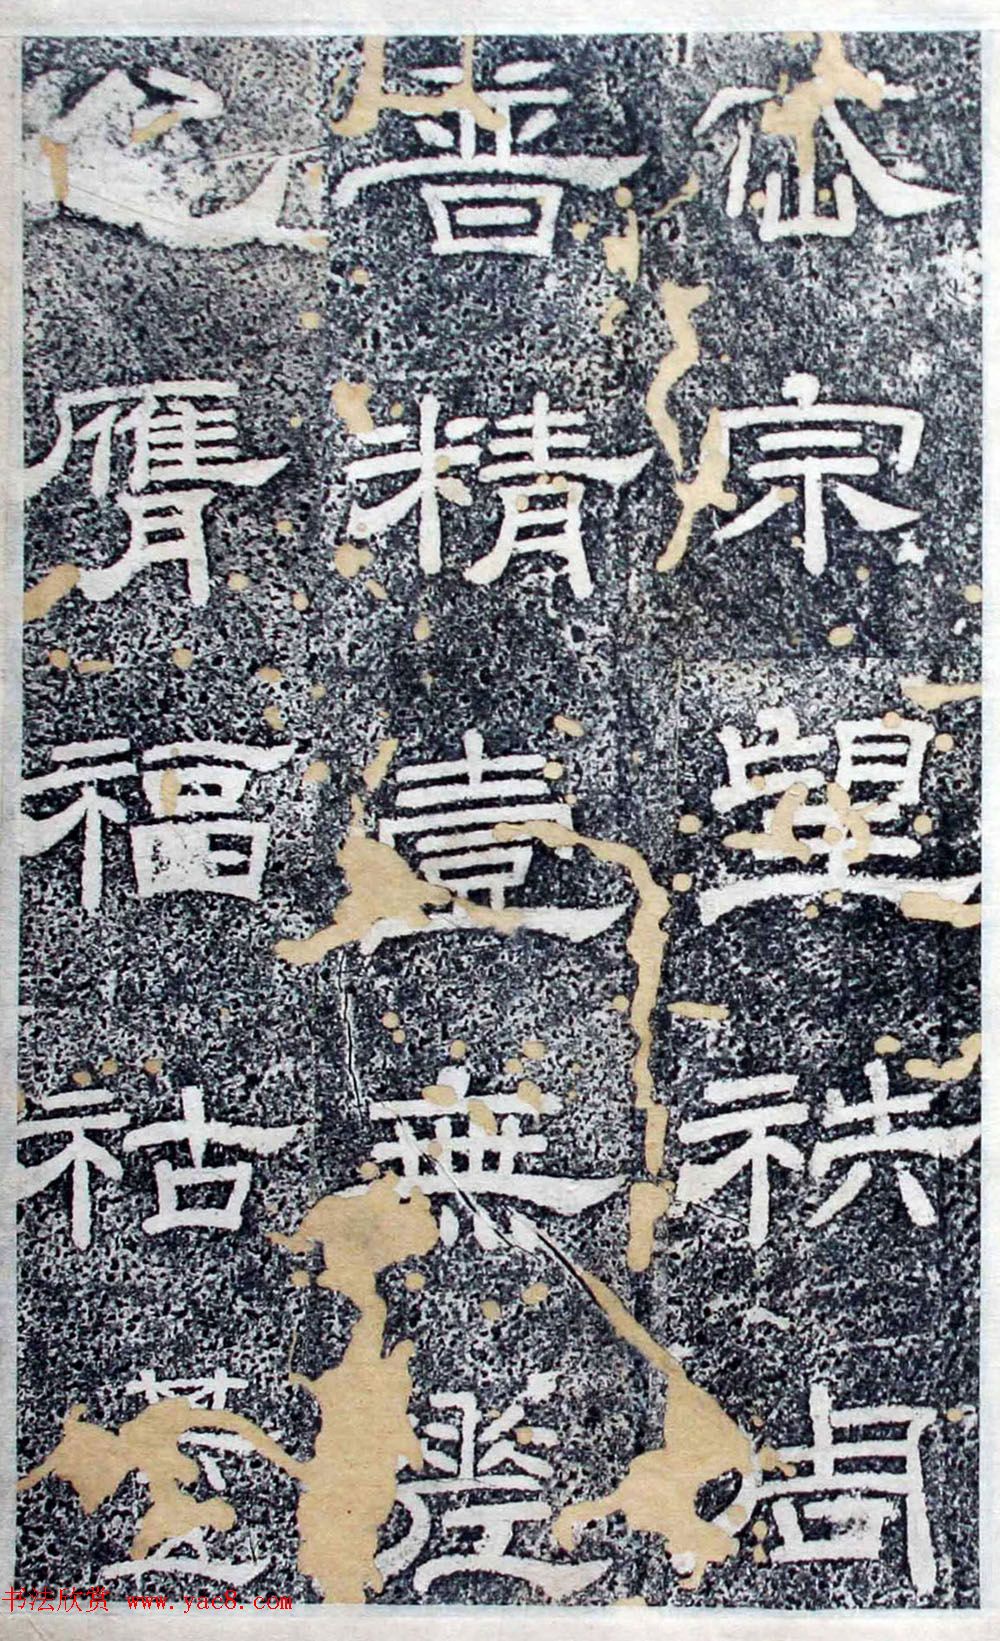 岱宗望秩周
精壹無
膺福祜
书法欣赏 www.yac8.com